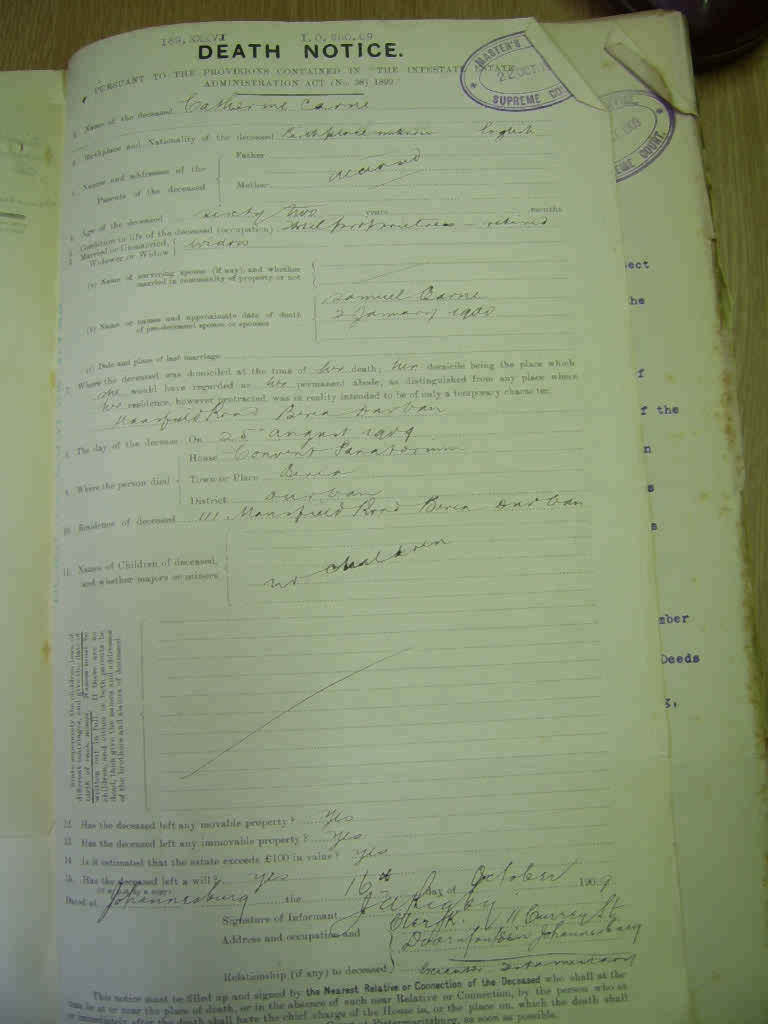 189, XXXVI I.O. 350.09
DEATH NOTICE.
PURSUANT TO THE PROVISIONS CONTAINED IN "THE INTESTATE ESTATE
ADMINISTRATION ACT (No. 38) 1899."
MASTER'S
22 OCT. 19
SUPREME CO
1909
EME COURT.
1. Name of the deceased Catherine Carne
2. Birthplace and Nationality of the deceased Birthplace unknown English
3. Names and addresses of the
Parents of the deceased
Father
Mother
4. Age of the deceased sixty two years months
5. Condition in life of the deceased (occupation) Hotel proprietress - retired
6. Married or Unmarried,
Widower or Widow
Widow
(a) Name of surviving spouse (if any), and whether
married in community of property or not
(b) Name or names and approximate date of death
of pre-deceased spouse or spouses
Samuel Carne
2 January 1900
(c) Date and place of last marriage
7. Where the deceased was domiciled at the time of her death; her domicile being the place which
she would have regarded as her permanent abode, as distinguished from any place where
her residence, however protracted, was in reality intended to be of only a temporary character.
Mansfield Road Berea Durban
8. The day of the decease On 25th August 1909
9. Where the person died
House Convent Sanatorium
Town or Place Berea
District Durban
10. Residence of deceased 111 Mansfield Road Berea Durban
11. Names of Children of deceased,
and whether majors or minors
no children
State separately the children born of
different marriages, and give the date of
birth of each minor. Names must be
written out in full. If there are no
children, and either or both parents be
dead, then give the names and addresses
of the brothers and sisters of deceased.
12. Has the deceased left any movable property? Yes
13. Has the deceased left any immovable property? Yes
14. Is it estimated that the estate exceeds £100 in value? Yes
15. Has the deceased left a will? Yes
Dated at Johannesburg the 16th day of October 1909
Signature of Informant
Address and occupation and
Clerk 11 Currey St
Doornfontein Johannesburg
Relationship (if any) to deceased Executor Testamentary
This notice must be filled up and signed by the Nearest Relative or Connection of the Deceased who shall at the
time be at or near the place of death, or in the absence of such near Relative or Connection, by the person who as
or immediately after the death shall have the chief charge of the House in, or the place on, which the death shall
Pietermaritzburg, as soon as possible.
ect
he
f
f the
n
s
s
mber
Deeds